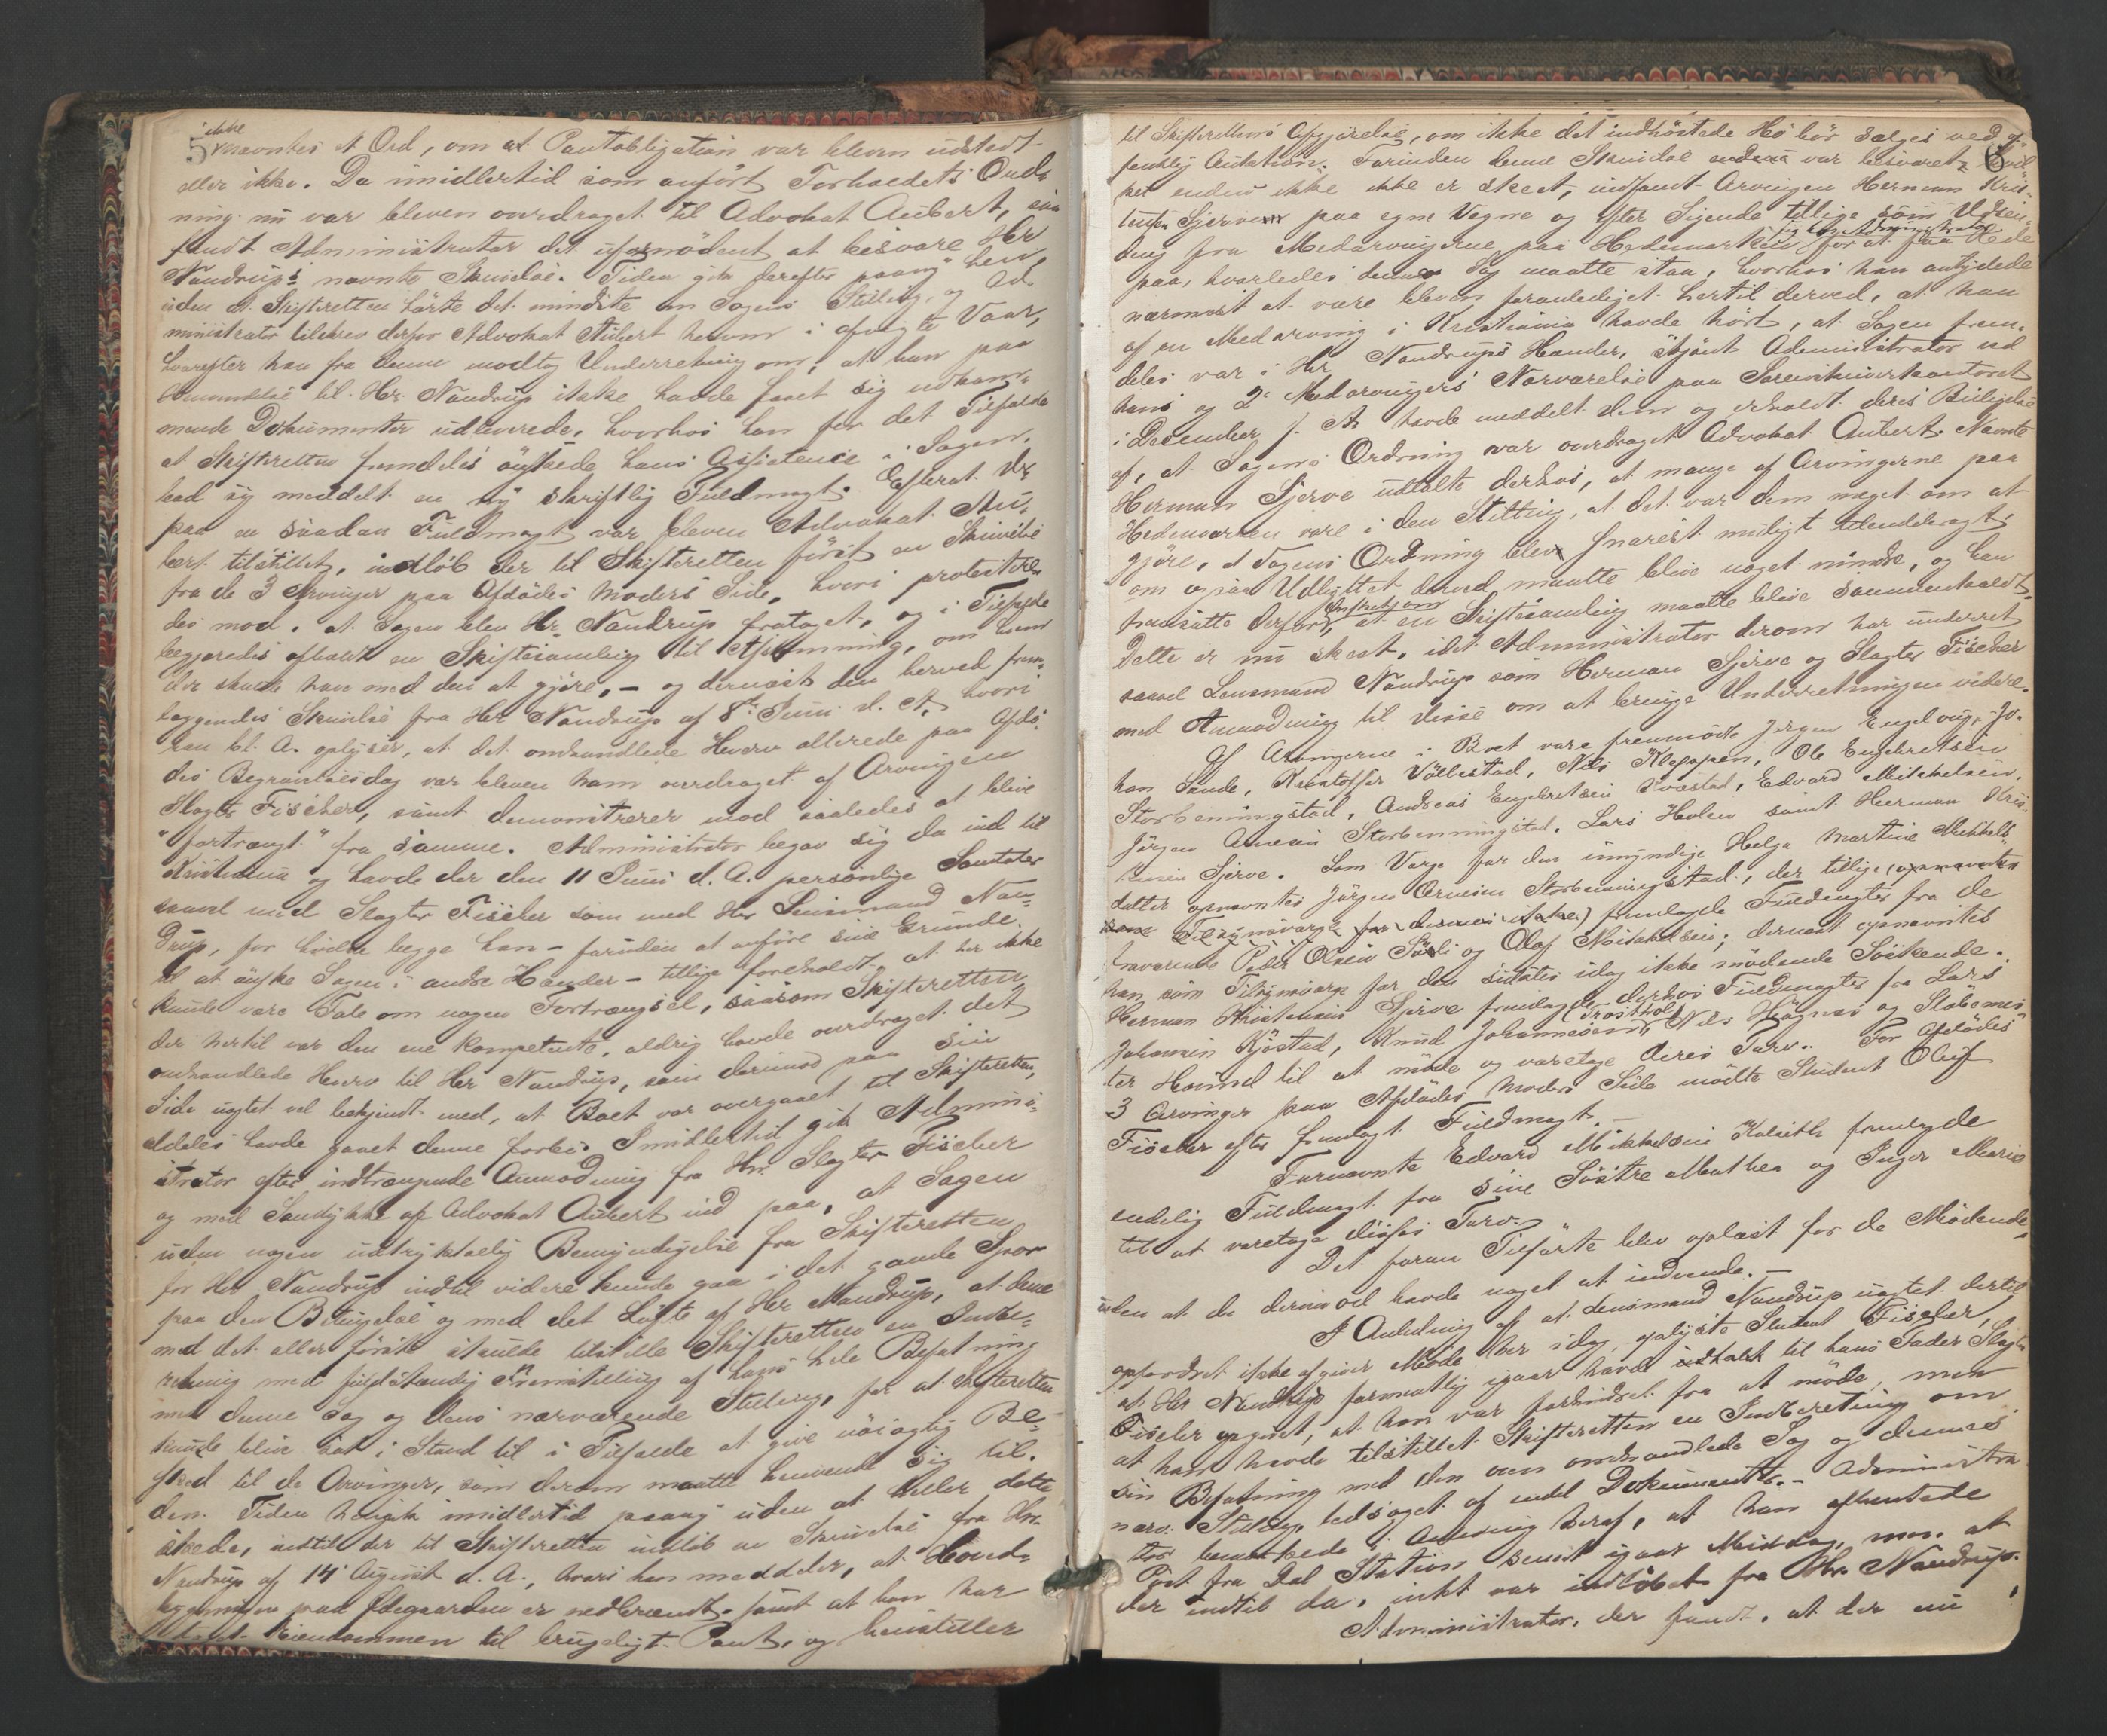 5 ikke
nævntes et Ord, om at Pantobligation var bleven udstedt
eller ikke. Da imidlertid som anført Forholdets Ord-
ning nu var bleven overdraget til Advokat Aubert, saa
fandt Administrator det ufornødent at besvare Hr
Naudrups nævnte Skrivelse. Tiden gik derefter paany hen,
uden at Skifteretten hørte det mindste om Sagens Stilling, og Ad-
ministrator tilskrev derfor Advokat Aubert herom i afvigte Vaar,
hvorefter han fra denne modtog Underretning om, at han paa
Henvendelse til Hr. Naudrup ikke havde faaet sig vedkom-
mende Dokumenter udleverede, hvorhos han for det Tilfælde
at Skifteretten fremdeles ønskede hans Assistence i Sagen,
bad sig meddelt en ny skriftlig Fuldmagt. Efterat der-
paa en saadan Fuldmagt var bleven Advokat Au-
bert tilstillet, indløb der til Skifteretten først en Skrivelse
fra de 3 Arvinger paa Afdødes Moders Side, hvori protestere-
des mod, at Sagen blev Hr. Naudrup frataget, og i Tilfælde
begjæredes afholdt en Skiftesamling til Afstemning, om hvem
der skulde have med den at gjøre, – og dernæst den herved frem-
læggendes Skrivelse fra Hr Naudrup af 8de Juni d. A. hvori
han bl. A. oplyser, at det omhandlede Hverv allerede paa Afdø-
des Begravelsesdag var bleven ham overdraget af Arvingen
Slagter Fischer, samt demonstrerer mod saaledes at blive
"fortrængt" fra samme. Administrator begav sig da ind til
Kristiania og havde der den 11 Juni d. A. personlige Samtaler
saavel med Slagter Fischer som med Hr Lensmand Nau-
drup, for hvilke begge han – foruden at anføre sine Grunde
til at ønske Sagen i andre Hænder – tillige foreholdt, at der ikke
kunde være Tale om nogen Fortrængsel, saasom Skifteretten,
der hertil var den ene kompetente, aldrig havde overdraget det
omhandlede Hverv til Hr Naudrup, som derimod paa sin
Side uagtet vel bekjendt med, at Boet var overgaaet til Skifteretten,
aldeles havde gaaet denne forbi. Imidlertid gik Admini-
strator efter indtrængende Anmodning fra Hr. Slagter Fischer
og med Samtykke af Advokat Aubert ind paa, at Sagen
uden nogen udtrykkelig Bemyndigelse fra Skifteretten
for Hr Naudrup indtil videre kunde gaa i det gamle Spor
paa den Betingelse og med det Løfte af Hr Naudrup, at denne
med det allerførste skulde tilstille Skifteretten en Indbe-
retning med fuldstændig Fremstilling af hans hele Befatning
med denne Sag og dens nærværende Stilling, for at Skifteretten
kunde blive sat i Stand til i Tilfælde at give nøiagtig Be-
sked til de Arvinger, som derom maatte henvende sig til
den. Tiden hengik imidlertid paany uden at heller dette
skede, indtil der til Skifteretten indløb en Skrivelse fra Hr.
Naudrup af 14 August d. A., hvori han meddeler, at Hoved-
bygningen paa Ødegaarden er nedbrændt, samt at han har
Eiendommen til brugeligt Pant, og henstiller
6
til Skifterettens Afgjørelse, om ikke det indhøstede Hø bør sælges ved of-
fentlig Auktion. Forinden denne Skrivelse endnu var besvaret, hvil-
ket endnu ikke ikke er skeet, indfandt Arvingen Herman Kris-
tensen Sjerve paa egne Vegne og efter Sigende tillige som Udsen-
ding fra Medarvingerne paa Hedemarken sig hos Administrator for at faa Rede
paa, hvorledes denne Sag maatte staa, hvorhos han antydede
nærmest at være bleven foranlediget hertil derved, at han
af en Medarving i Kristiania havde hørt, at Sagen frem-
deles var i Hr Naudrups Hænder, skjønt Administrator ved
hans og 2 Medarvingers Nærværelse paa Sorenskriverkontoret
i December f. A. havde meddelt dem og erholdt deres Billigelse
af, at Sagens Ordning var overdraget Advokat Aubert. Nævnte
Herman Sjerve udtalte derhos, at mange af Arvingerne paa
Hedemarken vare i den Stilling, at det var dem meget om at
gjøre, at Sagens Ordning blev snarest muligt tilendebragt,
om ogsaa Udbyttet derved maatte blive noget mindre, og han
fremsatte derfor Ønsket om, at en Skiftesamling maatte blive sammenkaldt.
Dette er nu skeet, idet Administrator derom har underrettet
saavel Lensmand Naudrup som Herman Sjerve og Slagter Fischer
med Anmodning til disse om at bringe Underretningen videre.
Af Arvingerne i Boet vare fremmødte Jørgen Engelvig, Jo-
han Sande, Kristoffer Vøllestad, Nils Kleppen, Ole Engebretsen
Storbenningstad, Andreas Engebretsen Kværstad, Edvard Mikkelsen,
Jørgen Arnesen Storbenningstad, Lars Hovlen samt Herman Kris-
tensen Sjerve. Som Værge for den umyndige Helga Martine Mikkels-
datter opnævntes Jørgen Arnesen Storbenningstad, der tillige
fremlagde Fuldmagter fra de
fraværende Peder Olsen Sørli og Olaf Mikkelsen; dernæst opnævntes
han som Tilsynsværge for den sidstes idag ikke mødende Søskende.
Herman Kristensen Sjerve fremlagde derhos Fuldmagter fra Lars
Johannesen Kjøstad, Knud Johannesen Trosthol, Nils Høgnæs og Støbemes-
ter Hovind til at møde og varetage deres Tarv. For Afdødes
3 Arvinger paa Afdødes Moders Side mødte Student Oluf
Fischer efter fremlagt Fuldmagt. –
Fornævnte Edvard Mikkelsen fremlagde
endelig Fuldmagt fra sine Søstre Mathea og Inger Marie
til at varetage disses Tarv.
Det foran Tilførte blev oplæst for de Mødende
uden at de derimod havde noget at indvende. –
I Anledning af at Lensmand Naudrup uagtet dertil
opfordret ikke afgiver Møde her idag, oplyste Student Fischer,
at Hr Naudrup formentlig igaar havde udtalt til hans Fader Slagter
Fischer opgivet, at han var forhindret fra at møde, men
at han havde tilstillet Skifteretten en Indberetning om
sin Befatning med den oven omhandlede Sag og dennes
nærv. Stilling, ledsaget af endel Dokumenter. – Administra-
tor bemærkede i Anledning heraf, at han afhentede
Post fra Dal Station senest igaar Middag, men at
der indtil da, intet var indløbet fra Hr. Naudrup.
Administrator, der fandt, at der nu